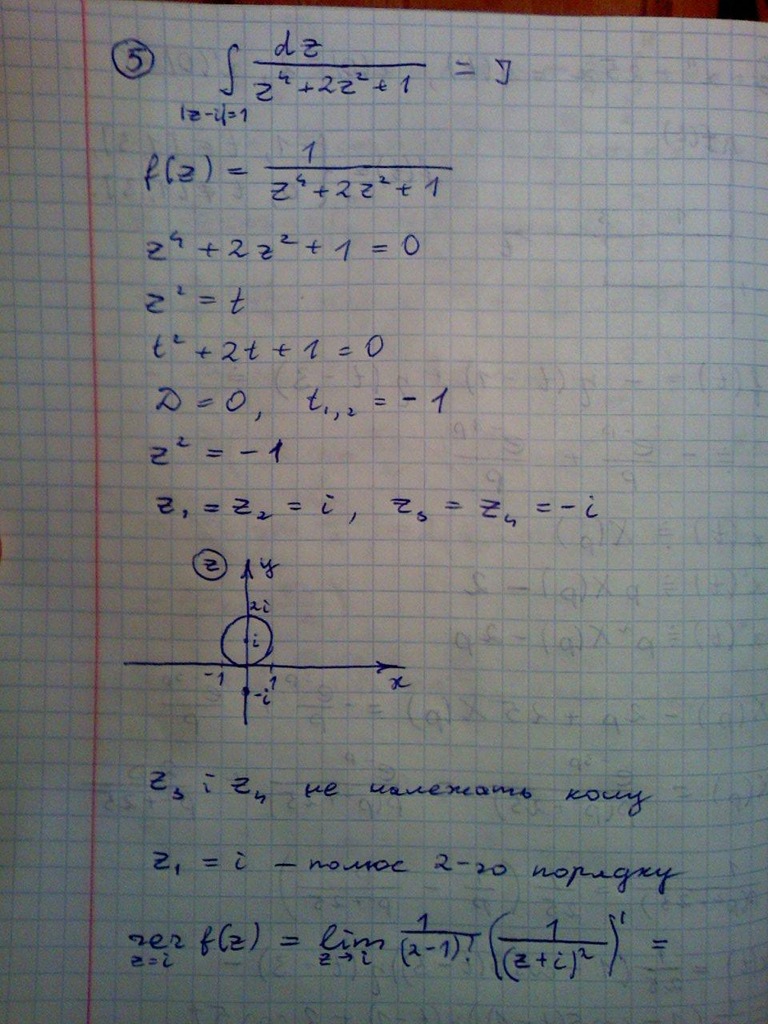 ⑤ ∫ dz / (z⁴ + 2z² + 1) = J
|z-i|=1
f(z) = 1 / (z⁴ + 2z² + 1)
z⁴ + 2z² + 1 = 0
z² = t
t² + 2t + 1 = 0
D = 0, t₁,₂ = -1
z² = -1
z₁ = z₂ = i, z₃ = z₄ = -i
ⓩ y
2i
i
-1 1 x
-i
z₃ і z₄ не належать колу
z₁ = i - полюс 2-го порядку
res f(z) = lim 1/(2-1)! (1/(z+i)²)' =
z=i z→i